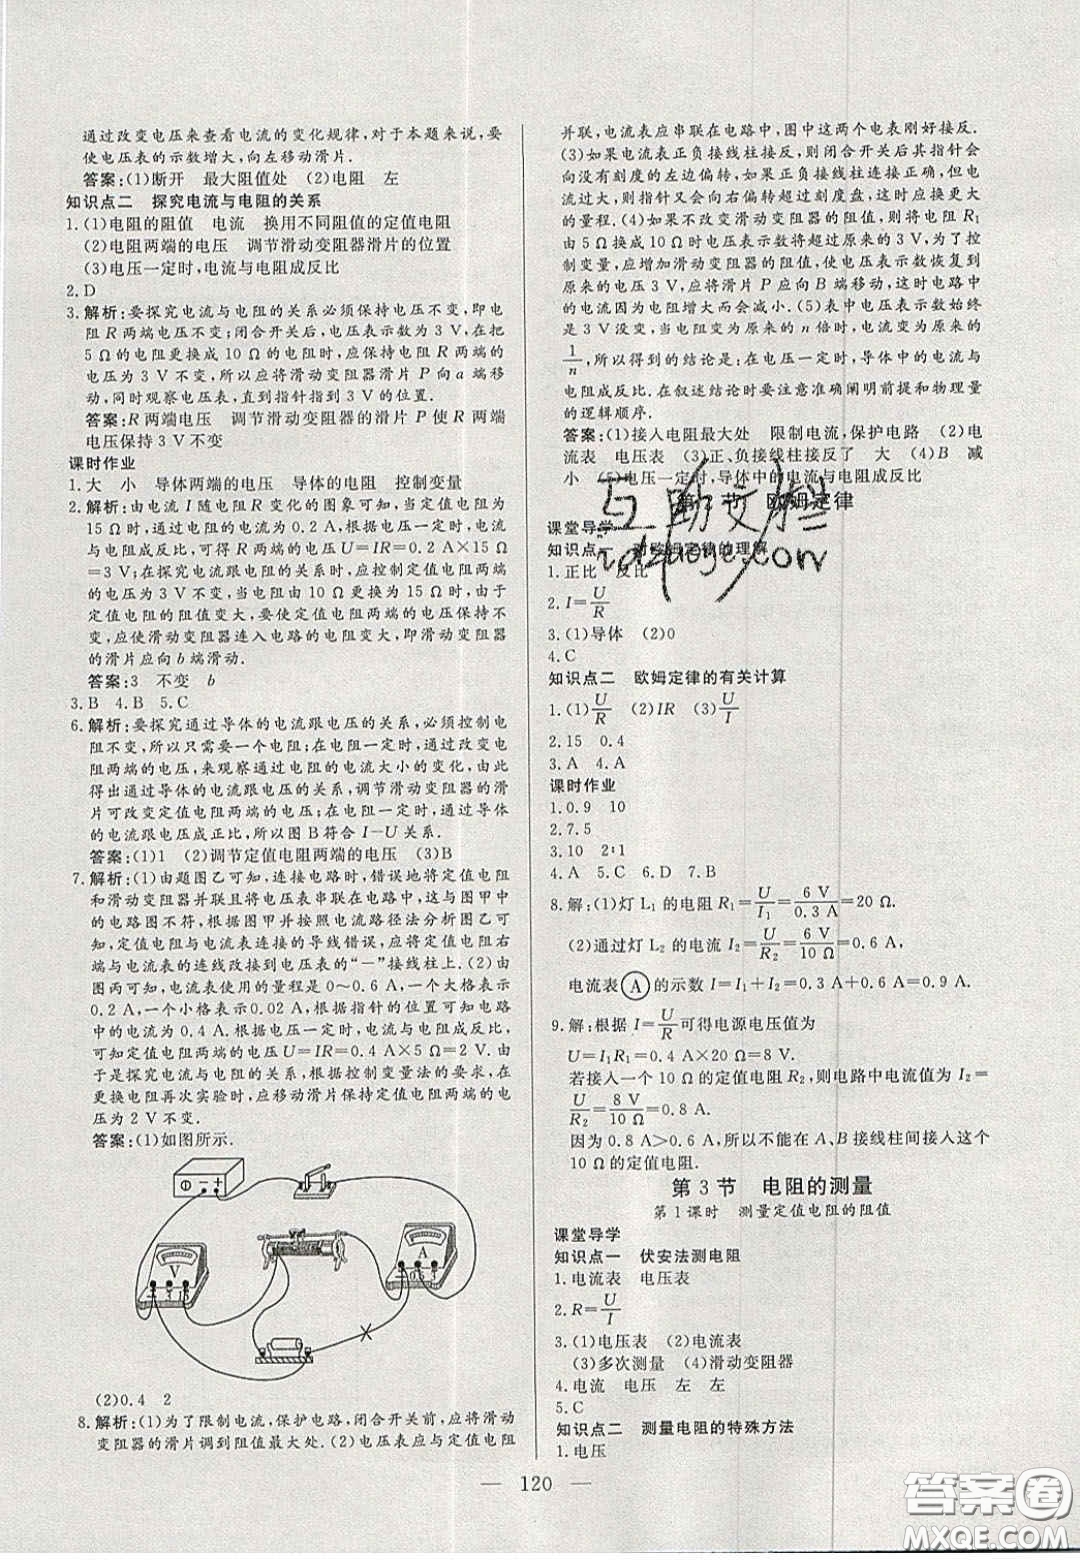 通过改变电压来查看电流的变化规律,对于本题来说,要
使电压表的示数增大,向左移动滑片.
答案:(1)断开 最大阻值处 (2)电阻 左
知识点二 探究电流与电阻的关系
1.(1)电阻的阻值 电流 换用不同阻值的定值电阻
(2)电阻两端的电压 调节滑动变阻器滑片的位置
(3)电压一定时,电流与电阻成反比
2.D
3.解析:要探究电流与电阻的关系必须保持电压不变,即电
阻 R 两端电压不变;闭合开关后,电压表示数为 3 V,在把
5 Ω的电阻更换成 10 Ω的电阻时,应保持电阻 R 两端的
电压为 3 V 不变,所以应将滑动变阻器滑片 P 向 a 端移
动,同时观察电压表,直到指针指到 3 V 的位置.
答案:R 两端电压 调节滑动变阻器的滑片 P 使 R 两端
电压保持 3 V 不变
课时作业
1.大 小 导体两端的电压 导体的电阻 控制变量
2.解析:由电流 I 随电阻 R 变化的图象可知,当定值电阻为
15 Ω时,通过电阻的电流为 0.2 A,根据电压一定时,电流
与电阻成反比,可得电阻两端的电压 U=IR=0.2 A×15 Ω=
3 V;在探究电流跟电阻的关系时,应控制定值电阻两端
的电压不变,当电阻由 10 Ω更换为 15 Ω时,由于接入电
路中定值电阻的阻值变大,要使定值电阻两端的电压不
变,应使滑动变阻器连入电路的电阻变大,即滑动变阻器
的滑片应向 b 端滑动.
答案:3 不变 b
3.B 4.B 5.C
6.解析:要探究通过导体的电流跟电压的关系,必须控制电
阻不变,所以只需要一个电阻;在电阻一定时,通过改变电
阻两端的电压,来观察通过电阻的电流大小的变化,由此得
出通过导体的电流跟电压的关系,调节滑动变阻器的滑
片可改变定值电阻两端的电压;在电阻一定时,通过导体
的电流跟电压成正比,所以图 B 符合 I-U 关系.
答案:(1)1 (2)调节定值电阻两端的电压 (3)B
7.解析:(1)由题图乙可知,连接电路时,错误地将定值电阻
和滑动变阻器并联且将电压表串联在电路中,这与图甲中
的电路图不符.根据图甲并按照电流路径法分析图乙可
知,定值电阻与电流表连接的导线错误,应将定值电阻右
端与电流表的连线改接到电压表的“-”接线柱上.(2)由
图丙可知,电流表使用的量程是 0~0.6 A,一大格表示
0.2 A,一小格表示 0.02 A.根据指针的位置可知电路
中的电流为 0.4 A.根据电压一定时,电流与电阻成反比,
可知定值电阻两端的电压 U=IR=0.4 A×5 Ω=2 V.由
于是探究电流与电阻的关系,根据控制变量法的要求,在
更换电阻再次实验时,应移动滑片保持定值电阻两端的电
压为 2 V 不变.
答案:(1)如图所示.
(2)0.4 2
8.解析:(1)为了限制电流,保护电路,闭合开关前,应将滑动
变阻器的滑片调到阻值最大处.(2)电压表应与定值电阻
并联,电流表应串联在电路中,图中这两个电表刚好接反.
(3)如果电流表正负接线柱接反,闭合开关后其指针会
向没有刻度的左边偏转,会向右偏转,选择的量程小了,
电流过大,指针又向右偏转超过刻度,这时应换用更大
的量程.(4)如果不改变滑动变阻器的阻值,将电阻 R₁
由 5 Ω换成 10 Ω时电压表示数将超过原来的 3 V,为了
控制变量,应增加滑动变阻器的阻值,使电压表示数恢复到
原来的 3 V,应将滑片 P 应向 B 端移动,这时电路中
的电流因为电阻增大而会减小.(5)表中电压表示数始终
是 3 V 没变,当电阻变为原来的 n 倍时,电流变为原来的
1/n,所以得到的结论是:电压一定时,导体中的电流与
电阻成反比.在叙述结论时要注意准确阐明前提和物理量
的逻辑顺序.
答案:(1)接入电阻最大处 限制电流,保护电路 (2)电
流表 电压表 (3)正、负接线柱接反 大 (4)B 减
小 (5)电压一定时,导体中的电流与电阻成反比
节 欧姆定律
课堂导学
知识点一 对欧姆定律的理解
1.正比 反比
2.I=U/R
3.(1)导体 (2)0
4.C
知识点二 欧姆定律的有关计算
1.(1)U/R (2)IR (3)U/I
2.15 0.4
3.A 4.A
课时作业
1.0.9 10
2.7.5
3.10 2∶1
4.A 5.C 6.D 7.B
8.解:(1)灯 L₁ 的电阻 R₁=U/I₁=6 V/0.3 A=20 Ω.
(2)通过灯 L₂ 的电流 I₂=U/R₂=6 V/10 Ω=0.6 A,
电流表 A 的示数 I=I₁+I₂=0.3 A+0.6 A=0.9 A.
9.解:根据 I=U/R 可得电源电压值为
U=I₁R₁=0.4 A×20 Ω=8 V.
若接入一个 10 Ω的定值电阻 R₂,则电路中电流值为 I₂=
U/R₂=8 V/10 Ω=0.8 A.
因为 0.8 A>0.6 A,所以不能在 A、B 接线柱间接入这个
10 Ω的定值电阻.
第 3 节 电阻的测量
第 1 课时 测量定值电阻的阻值
课堂导学
知识点一 伏安法测电阻
1.电流表 电压表
2.R=U/I
3.(1)电压表 (2)电流表
(3)多次测量 (4)滑动变阻器
4.电流 电压 左 左
5.C
知识点二 测量电阻的特殊方法
1.电压
— 120 —
答案圈
MXQE.COM